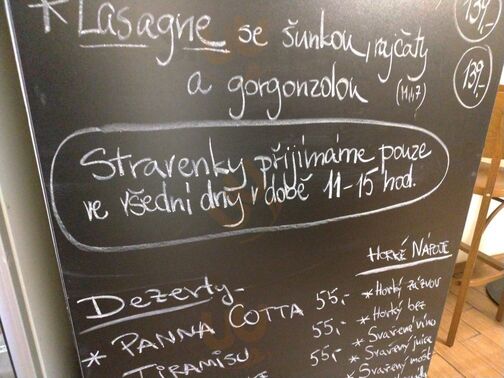 * Lasagne se šunkou, rajčaty
a gorgonzolou (M,1,7)
139,-
139,-
Stravenky přijímáme pouze
ve všední dny v době 11-15 hod.
Dezerty-
* PANNA COTTA 55,-
TIRAMISU 55,-
55,-
HORKÉ NÁPOJE
* Horký zázvor
* Horký bez
* Svařené víno
* Svařený juice
* Svařený mošt